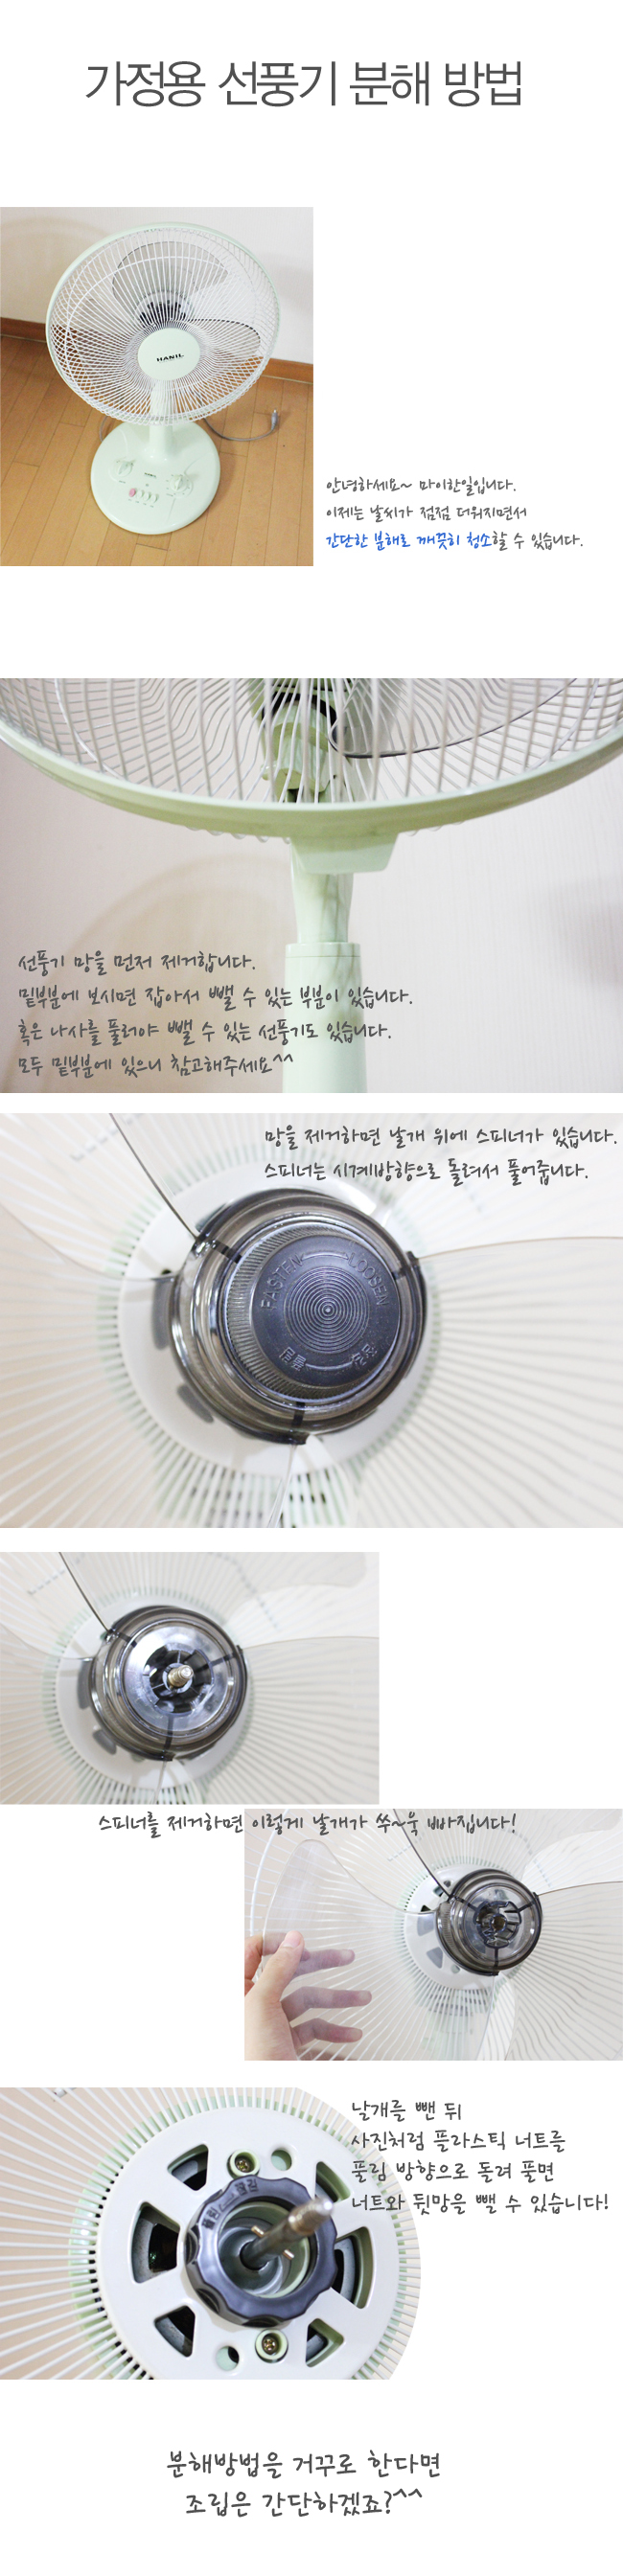 가정용 선풍기 분해 방법
HANIL
안녕하세요~ 마이한일입니다.
이제는 날씨가 점점 더워지면서
간단한 분해로 깨끗히 청소할 수 있습니다.
선풍기 망을 먼저 제거합니다.
밑부분에 보시면 잡아서 뺄 수 있는 부분이 있습니다.
혹은 나사를 풀러야 뺄 수 있는 선풍기도 있습니다.
모두 밑부분에 있으니 참고해주세요^^
망을 제거하면 날개 위에 스피너가 있습니다.
스피너는 시계방향으로 돌려서 풀어줍니다.
FASTEN LOOSEN
스피너를 제거하면 이렇게 날개가 쑤~욱 빠집니다!
날개를 뺀 뒤
사진처럼 플라스틱 너트를
풀림 방향으로 돌려 풀면
너트와 뒷망을 뺄 수 있습니다!
분해방법을 거꾸로 한다면
조립은 간단하겠죠?^^